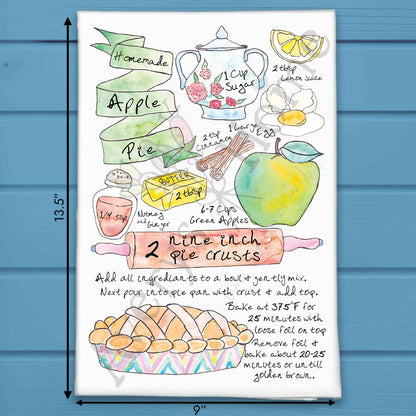 Homemade
Apple
Pie
1 Cup
Sugar
2 tbsp
Lemon Juice
1 Large Egg
2 tsp
Cinnamon
1/4 tsp
Nutmeg
and
Ginger
BUTTER
2 tbsp
6-7 Cups
Green Apples
2 nine inch
pie crusts
Add all ingredients to a bowl & gently mix.
Next pour into pie pan with crust & add top.
Bake at 375°F for
25 minutes with
loose foil on top
Remove foil &
bake about 20-25
minutes or until
golden brown.
13.5"
9"